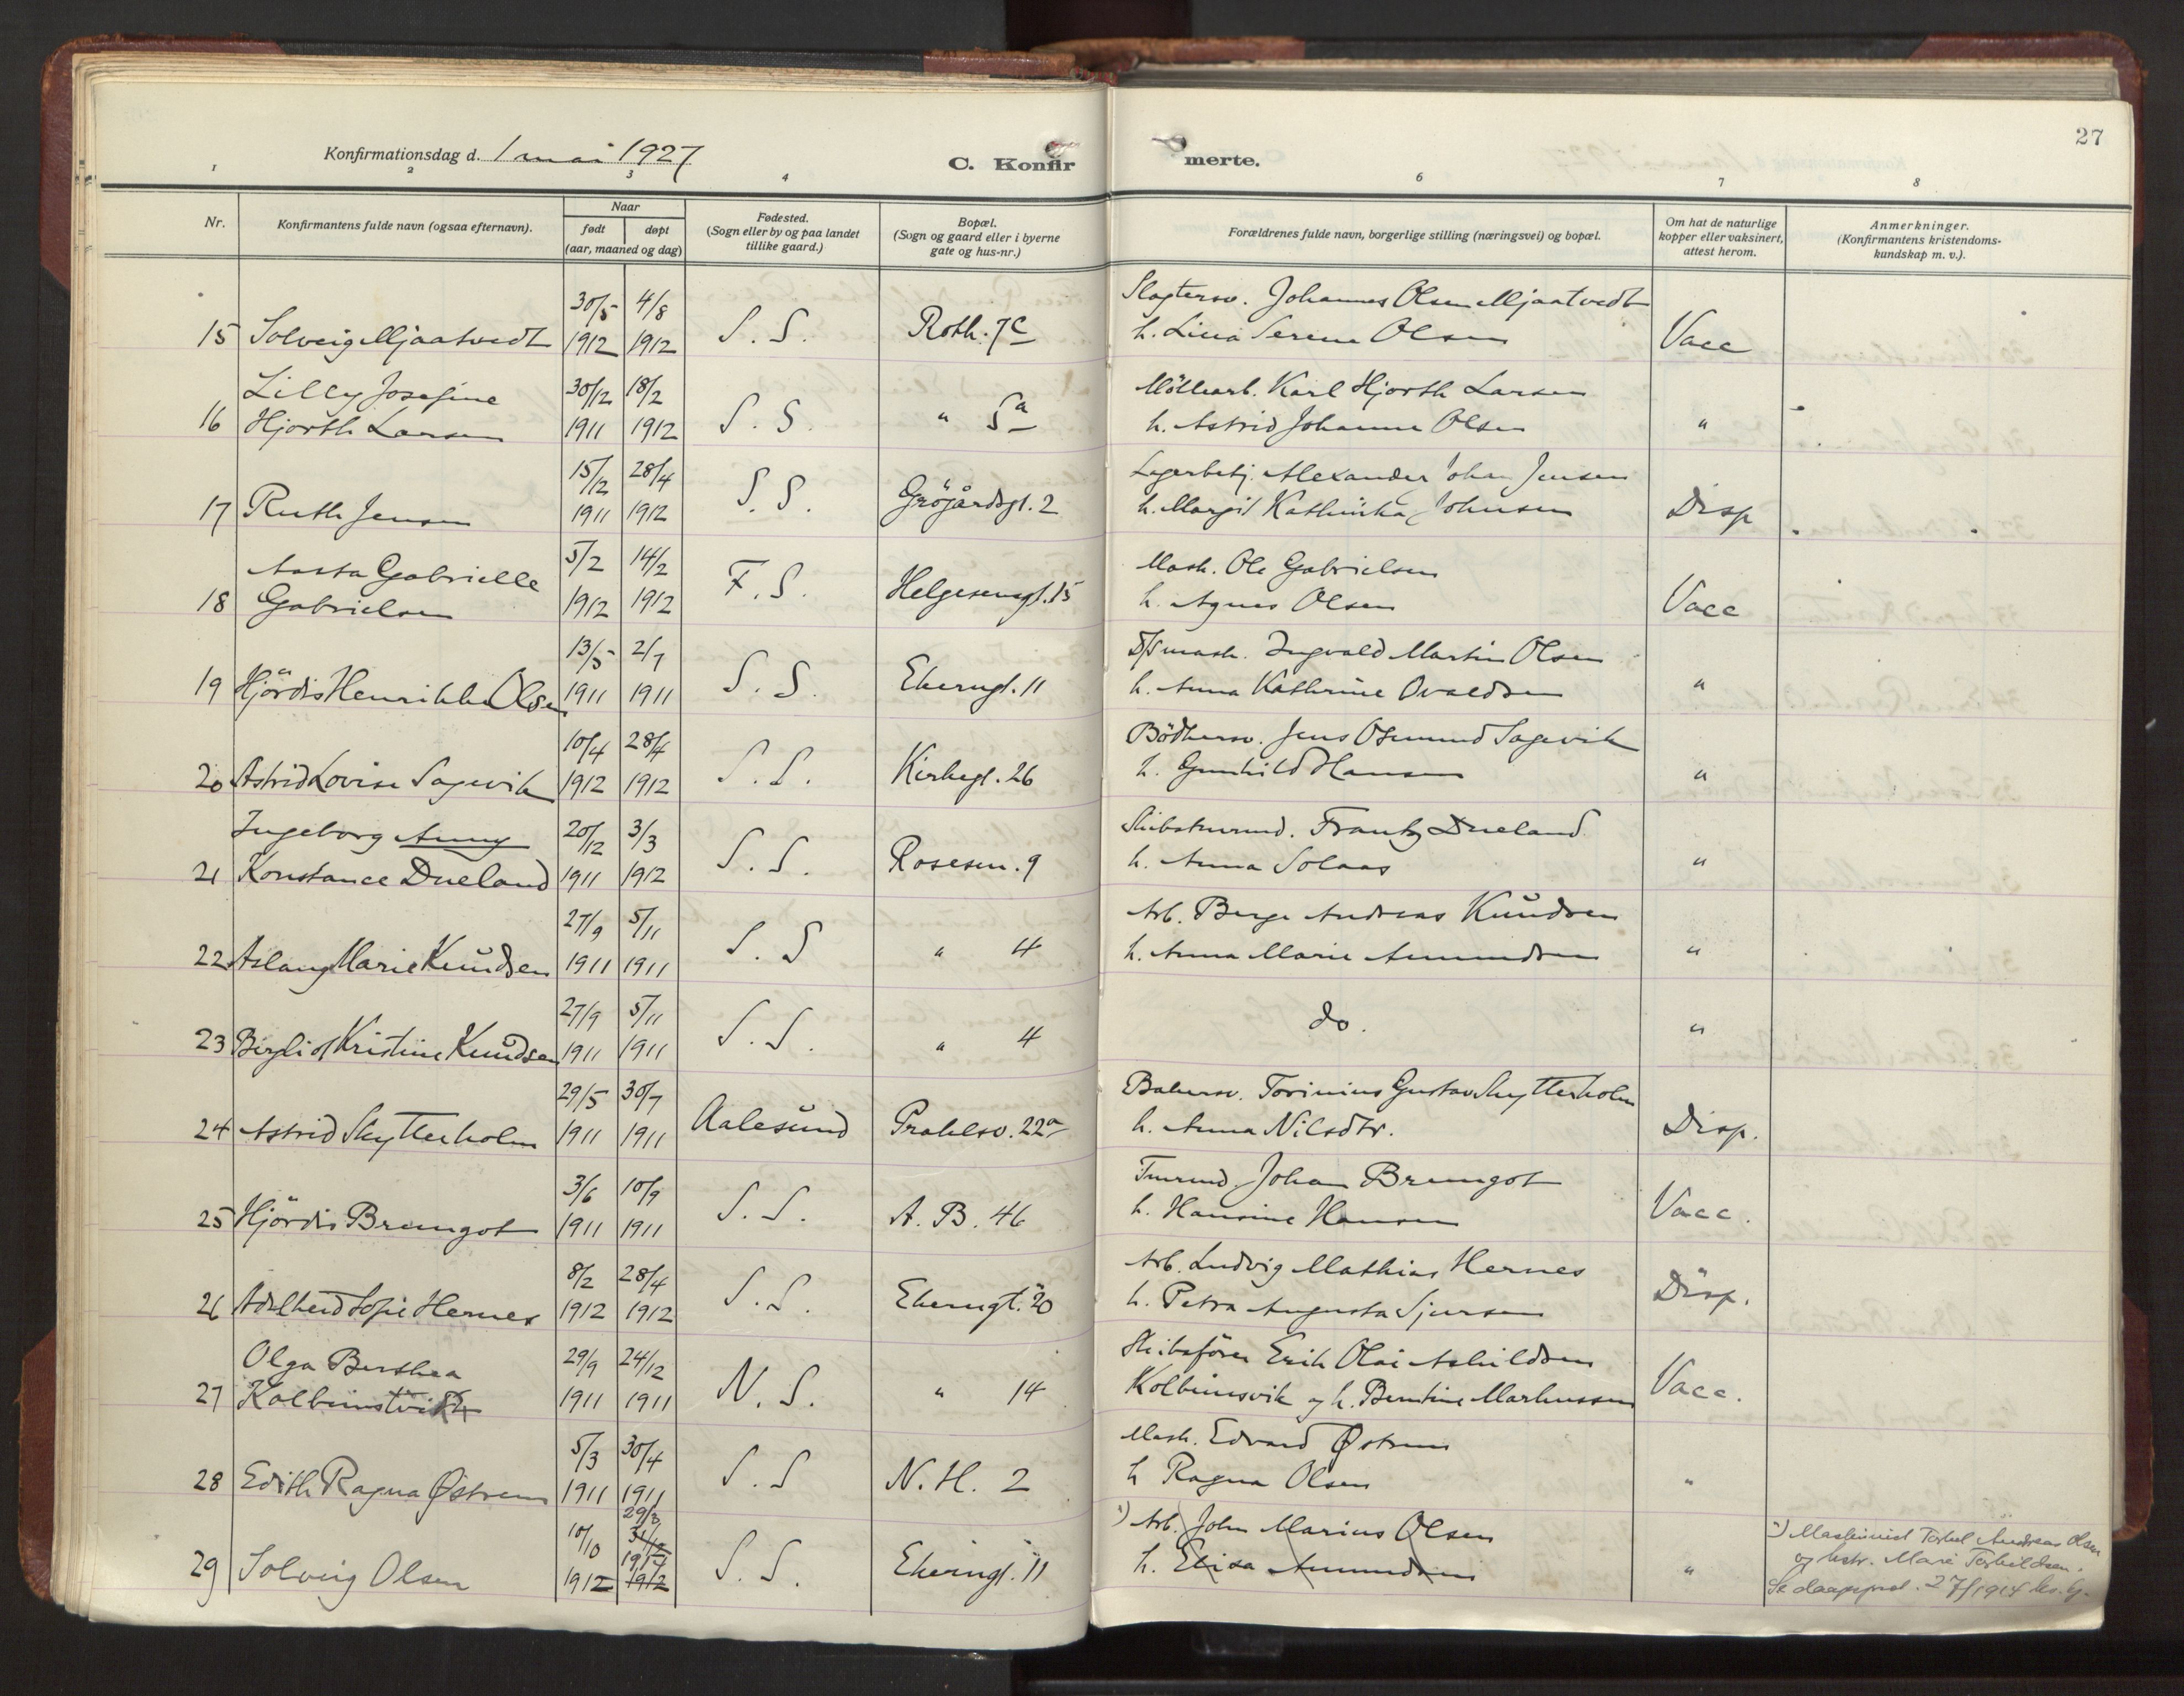 27
Konfirmationsdag d. 1 mai 1927
C. Konfirmerte.
1 2 3 4 6 7 8
Nr.
Konfirmantens fulde navn (ogsaa efternavn).
Naar
født døpt
(aar, maaned og dag)
Fødested.
(Sogn eller by og paa landet
tillike gaard.)
Bopæl.
(Sogn og gaard eller i byerne
gate og hus-nr.)
Forældrenes fulde navn, borgerlige stilling (næringsvei) og bopæl.
Om hat de naturlige
kopper eller vaksinert,
attest herom.
Anmerkninger.
(Konfirmantens kristendoms-
kundskap m. v.).
30/5 4/8 Slagtersv. Johannes Olsen Mjaatvedt
15 Solveig Mjaatvedt 1912 1912 S. S. Roth. 7c h. Lina Serene Olsen Vacc
Lilly Josefine 30/12 18/2 Möllearb. Karl Hjorth Larsen
16 Hjorth Larsen 1911 1912 S. S. " 5a h. Astrid Johanne Olsen "
15/12 28/4 Lagerbetj. Alexander Johan Jensen
17 Ruth Jensen 1911 1912 S. S. Grögårdsgt. 2 h. Margit Kathinka Johnsen Disp
Aasta Gabrielle 5/2 14/2 Mask. Ole Gabrielsen
18 Gabrielsen 1912 1912 F. S. Helgesensgt. 15 h. Agnes Olsen Vacc
13/5 2/7 D/Smask. Ingvald Martin Olsen
19 Hjördis Henrikke Olsen 1911 1911 S. S. Ekerngt. 11 h. Anna Kathrine Ovaldsen "
10/4 28/4 Bödkersv. Jens Osmund Sagevik
20 Astrid Lovise Sagevik 1912 1912 S. S. Kirkegt. 26 h. Gunhild Hansen "
Ingeborg Anny 20/12 3/3 Skibstmrmd. Frantz Dueland
21 Konstance Dueland 1911 1912 S. S. Rosesen. 9 h. Anna Solaas "
27/9 5/11 Arb. Berge Andreas Knudsen
22 Aslaug Marie Knudsen 1911 1911 S. S " 4 h. Anna Marie Amundsen "
27/9 5/11 do.
23 Bergliot Kristine Knudsen 1911 1911 S. S. " 4 "
29/5 30/7 Bakersv. Torinius Gustav Skytterholm
24 Astrid Skytterholm 1911 1911 Aalesund Prahlsv. 22a h. Anna Nilsdtr. Disp.
3/6 10/9 Tmrmd. Johan Bremgot
25 Hjördis Bremgot 1911 1911 S. S. A. B. 46 h. Hansine Hansen Vacc.
8/2 28/4 Arb. Ludvig Mathias Hernes
26 Adelheid Sofie Hernes 1912 1912 S. S. Ekerngt. 20 h. Petra Augusta Sjursen Disp.
Olga Berthea 29/9 24/12 Skibsförer Erik Olai Askildsen
27 Kolbeinsvik 1911 1911 N. S. " 14 Kolbeinsvik og h. Berntine Markussen Vacc.
5/3 30/4 Mask. Edvard Østrem
28 Edith Ragna Østrem 1911 1911 S. S N. H. 2 h Ragna Olsen "
10/10 29/3 31/12 1) Arb. John Marius Olsen
29 Solveig Olsen 1912 1914 1912 S. S. Ekerngt. 11 h. Elisa Amundsen "
1) Maskinist Torkel Andreas Olsen
og hstr. Marie Torkildsen.
Se daapsprot. 27/1914